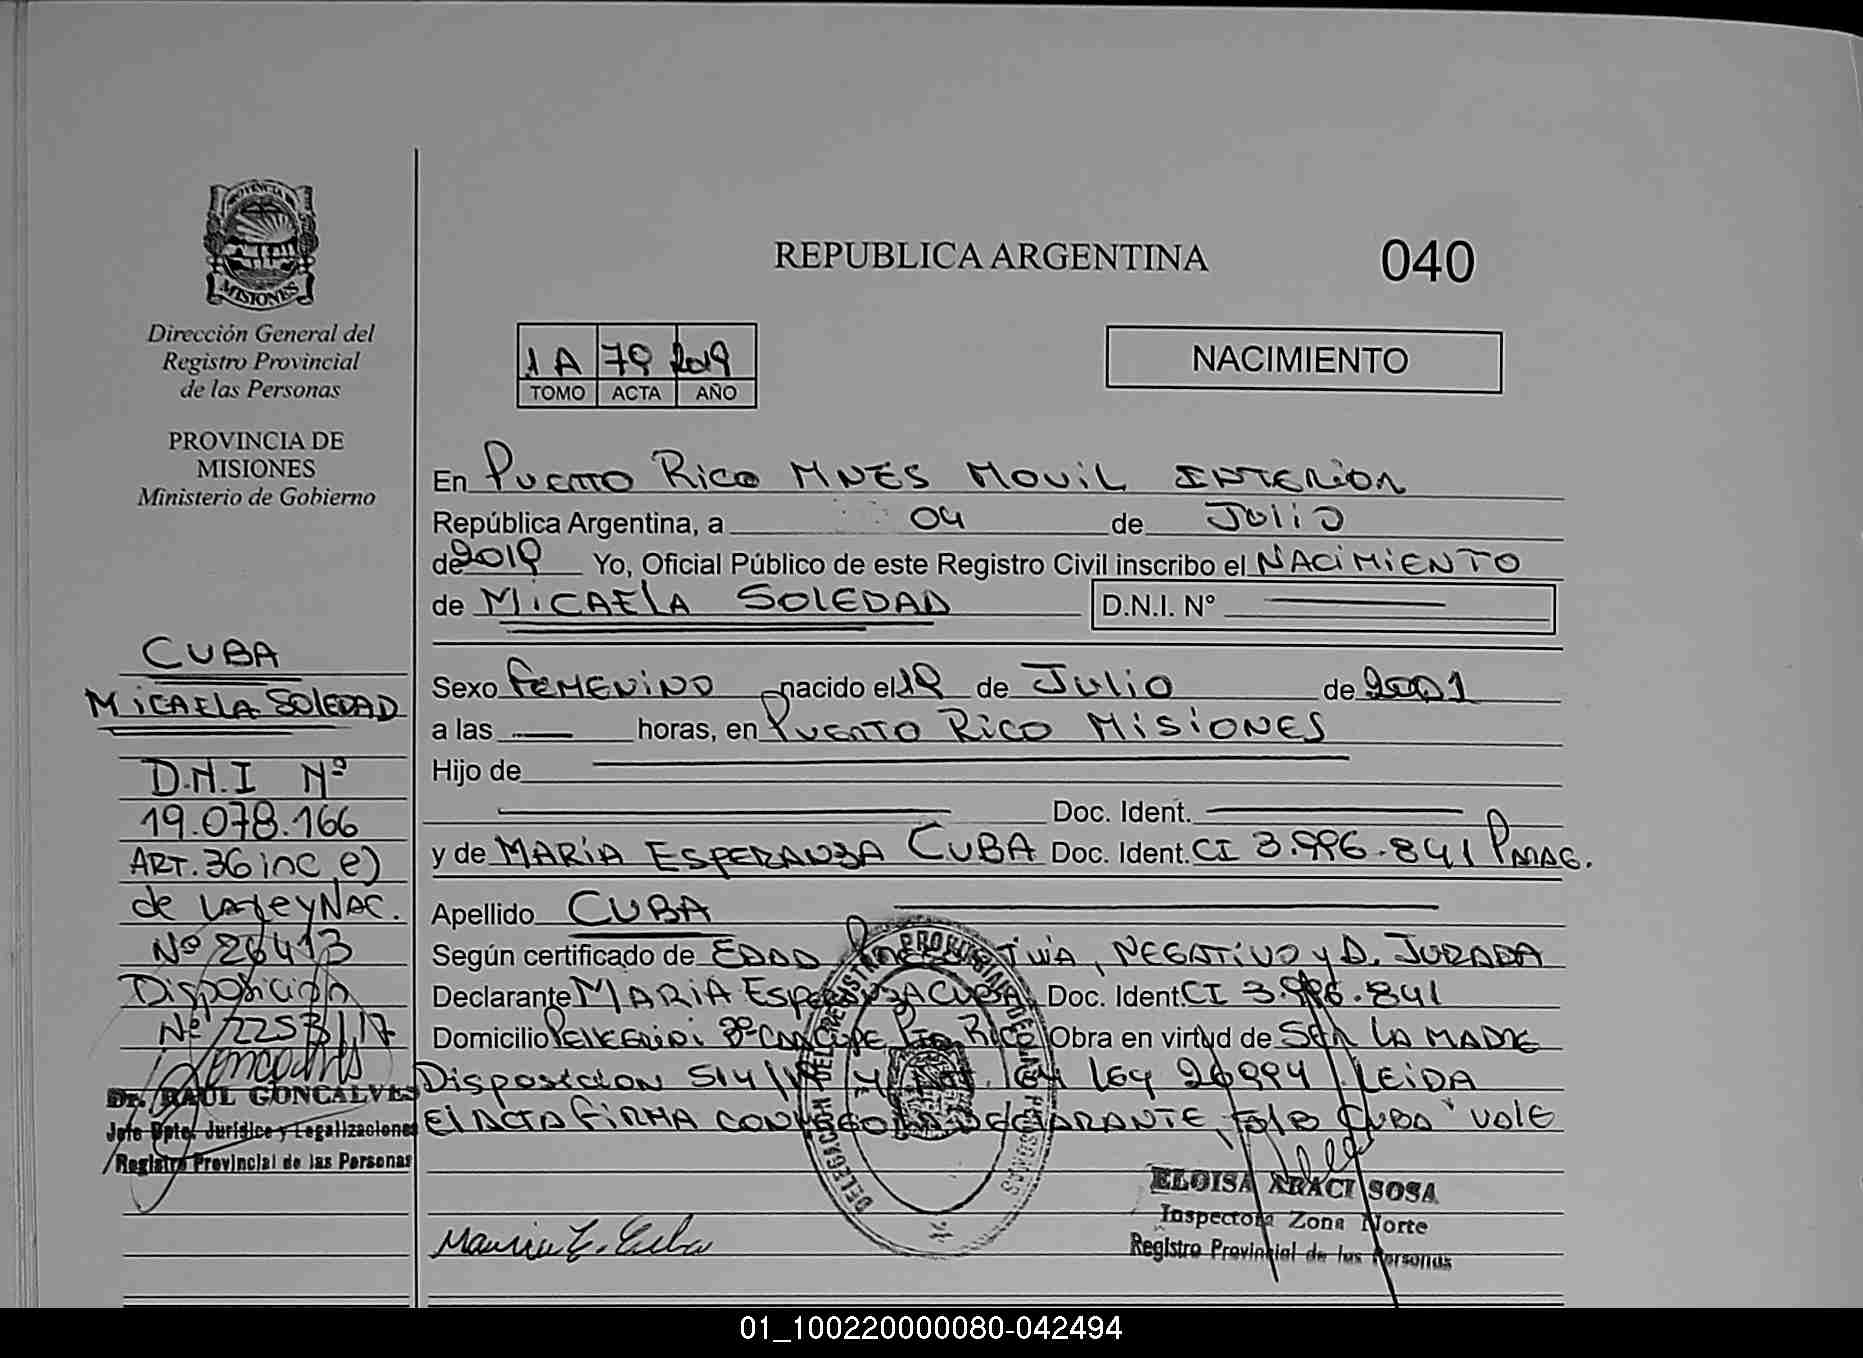 PROVINCIA DE
MISIONES
Dirección General del
Registro Provincial
de las Personas
PROVINCIA DE
MISIONES
Ministerio de Gobierno
CUBA
MICAELA SOLEDAD
D.N.I Nº
19.078.166
ART. 36 inc e)
de la Ley NAC.
Nº 26413
Disposición
Nº 2253/17
Dr. RAUL GONCALVES
Jefe Dpto. Jurídico y Legalizaciones
Registro Provincial de las Personas
REPUBLICA ARGENTINA 040
1A 79 2019
TOMO ACTA AÑO
NACIMIENTO
En Puerto Rico MNES MOVIL INTERIOR
República Argentina, a 04 de Julio
de 2019 Yo, Oficial Público de este Registro Civil inscribo el NACIMIENTO
de MICAELA SOLEDAD D.N.I. Nº
Sexo FEMENINO nacido el 19 de Julio de 2001
a las horas, en Puerto Rico MISIONES
Hijo de
Doc. Ident.
y de MARIA ESPERANZA CUBA Doc. Ident. CI 3.996.841 PARAG.
Apellido CUBA
Según certificado de EDAD, NEGATIVO y D. JURADA
Declarante MARIA ESPERANZA CUBA Doc. Ident. CI 3.996.841
Domicilio Pto Rico Obra en virtud de SER LA MADRE
Disposicion 514/ LEY 26994 LEIDA
El ACTA FIRMA CONMIGO LA DECLARANTE, CUBA VALE
DELEGACION DEL REGISTRO PROVINCIAL DE LAS PERSONAS
Maria E. Cuba
ELOISA ARACI SOSA
Inspectora Zona Norte
Registro Provincial de las Personas
01_100220000080-042494